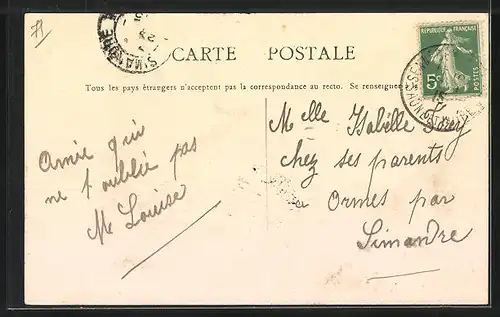 CARTE POSTALE
Tous les pays étrangers n'acceptent pas la correspondance au recto. Se renseigner
REPUBLIQUE FRANÇAISE
5c
SIMANDRE
Amie qui
ne t'oublie pas
M Louise
Melle Isabelle
chez ses parents
Ormes par
Simandre